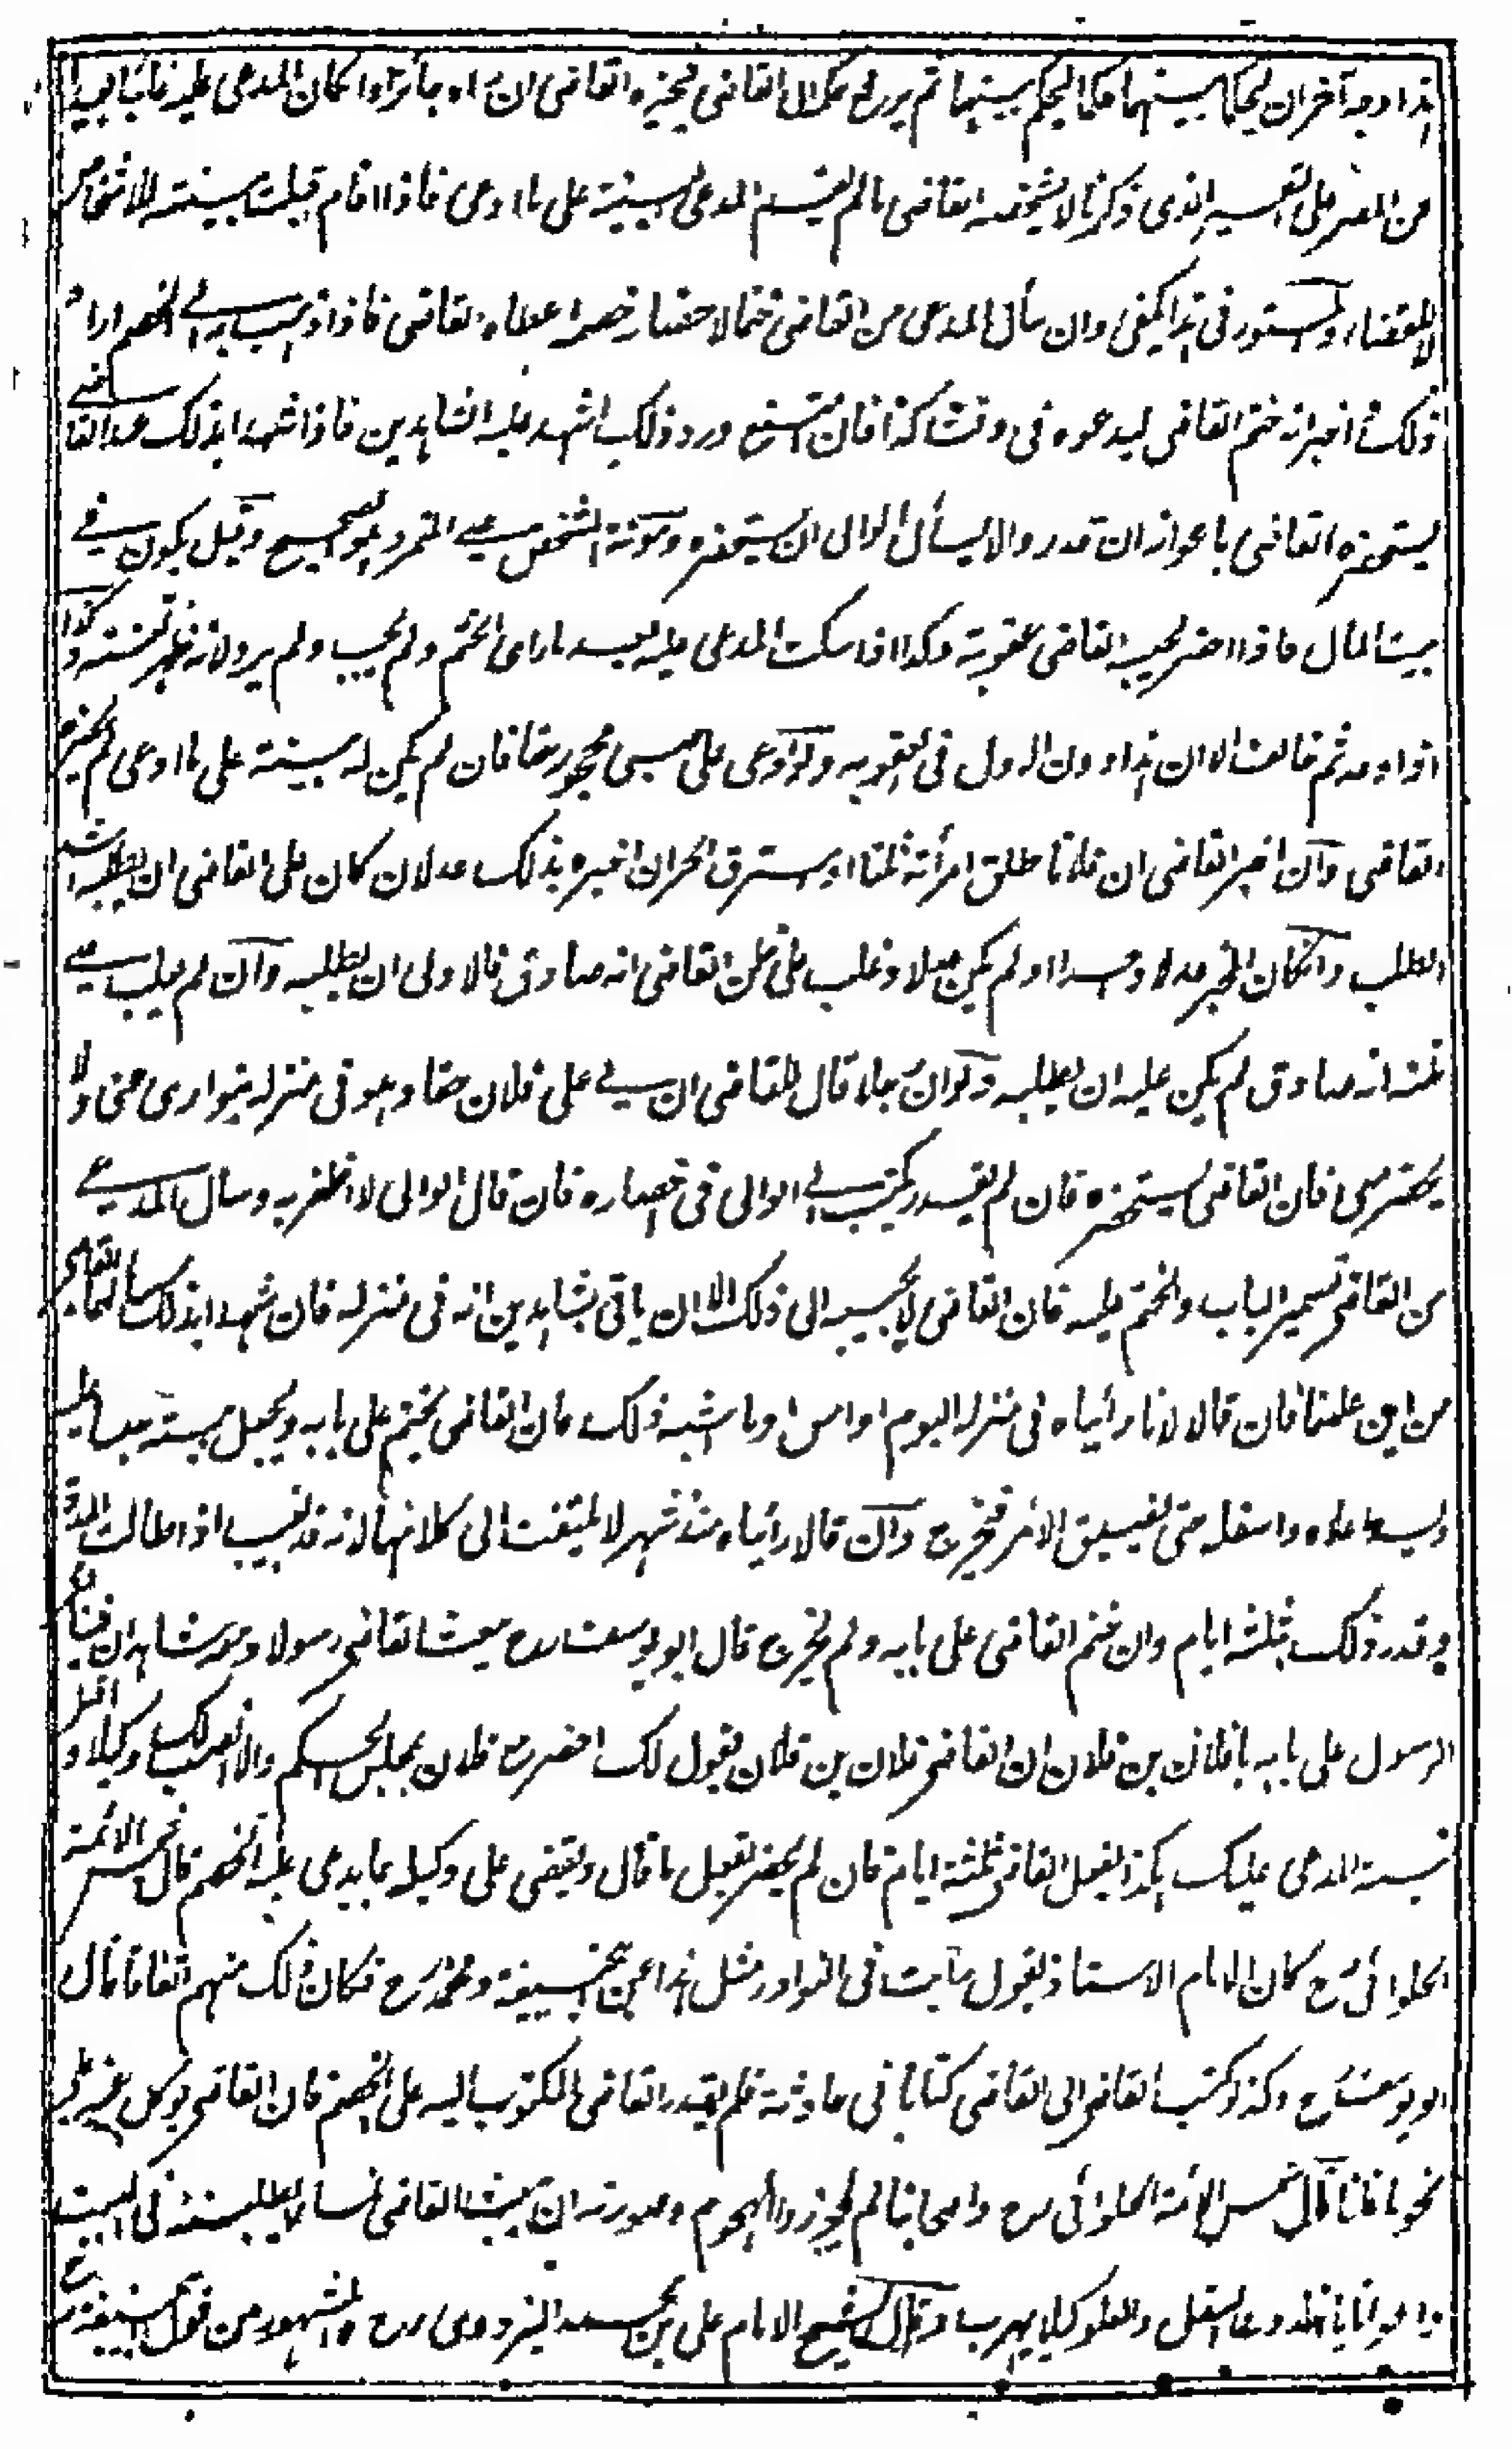 هذا وجه آخران يحكما بينهما حكما ليحكم بينهما ثم يرفع حكمه الى القاضي فيجيزه القاضي ان رآه جائزا واذا كان المدعى عليه غائبا بعيدا
من المصر على التفسير الذي ذكرنا لا يشخصه القاضي ما لم يقم المدعي البينة على ما ادعى فاذا اقام قبلت بينته للاشخاص
لا للقضاء والمستور في هذا يكفي وان سأل المدعي من القاضي ختما لاحضار خصمه اعطاه القاضي فاذا ذهب به الى الخصم اراه
ذلك اخبرانه ختم القاضي ليدعوه في وقت كذا فان امتنع ورد ذلك اشهد عليه الشاهدين فاذا شهدا بذلك عند القاضي
يستحضره القاضي باعوانه ان قدر والا يسأل الوالي ان يستحضره ومؤنة الشخص على المتمرد هو الصحيح وقيل يكون في
بيت المال فاذا احضر يحبسه القاضي عقوبة وكذا اذا سكت المدعى عليه بعد ما رأى الختم ولم يجب ولم يرد لانه ظهر تعنته وكذا
اذا وعد ثم خالف الا ان هذا دون الاول في العقوبة ولو ادعى على صبي محجور حقا فان لم يكن له بينة على ما ادعى لم يحضره
القاضي وان اخبر القاضي ان فلانا طلق امرأته ثلثا او يسترق الحران اخبره بذلك عدلان كان على القاضي ان يطلبه اشد
الطلب وان كان المخبر عدلا واحدا او لم يكن عدلا وغلب على ظن القاضي انه صادق فالاولى ان يطلبه وان لم يغلب على
ظنه انه صادق لم يكن عليه ان يطلبه ولو ان رجلا قال للقاضي ان لي على فلان حقا وهو في منزله يتوارى عني ولا
يحضر معي فان القاضي يستحضره فان لم يقدر يكتب الى الوالي في احضاره فان قال الوالي لا اظفر به وسأل المدعي
من القاضي تسمير الباب والختم عليه فان القاضي لا يجيبه الى ذلك الا ان يأتي بشاهدين انه في منزله فان شهدا بذلك سألهما القاضي
من اين علمتما فان قالا لانا رأيناه في منزله اليوم او امس او ما اشبه ذلك فان القاضي يختم على بابه ويجعل بيته عليه
ويسد اعلاه واسفله حتى يضيق الامر فيخرج وان قالا رأيناه منذ شهر لا يلتفت الى كلامهما لانه قد يغيب اذا طالت المدة
وقدر ذلك بثلثة ايام وان ختم القاضي على بابه ولم يخرج قال ابو يوسف رح يبعث القاضي رسولا ومعه شاهدان فينادي
الرسول على بابه يا فلان بن فلان ان القاضي فلان بن فلان يقول لك احضر مع فلان مجلس الحكم والا انصب لك وكيلا واقبل
بينة المدعي عليك هكذا يفعل القاضي ثلثة ايام فان لم يحضر يفعل ما قال ويقضي على وكيله بما يدعي عليه الخصم قال شمس الائمة
الحلوائي رح كان الامام الاستاذ يقول رأيت في النوادر مثل هذا عن ابي حنيفة ومحمد رح فكان ذلك منهم اتفاقا قال
ابو يوسف رح وكذا لو كتب القاضي الى القاضي كتابا في حادثة فلم يقدر القاضي المكتوب اليه على الخصم فان القاضي يوكل عنه
قال شمس الائمة الحلوائي رح واصحابنا لم يجوزوا الهجوم وصورته ان يبعث القاضي نساء ليطلبنه في البيت
السفل والعلو كيلا يهرب وقال الشيخ الامام علي بن محمد البزدوي رح والمشهور من قول ابي حنيفة رح